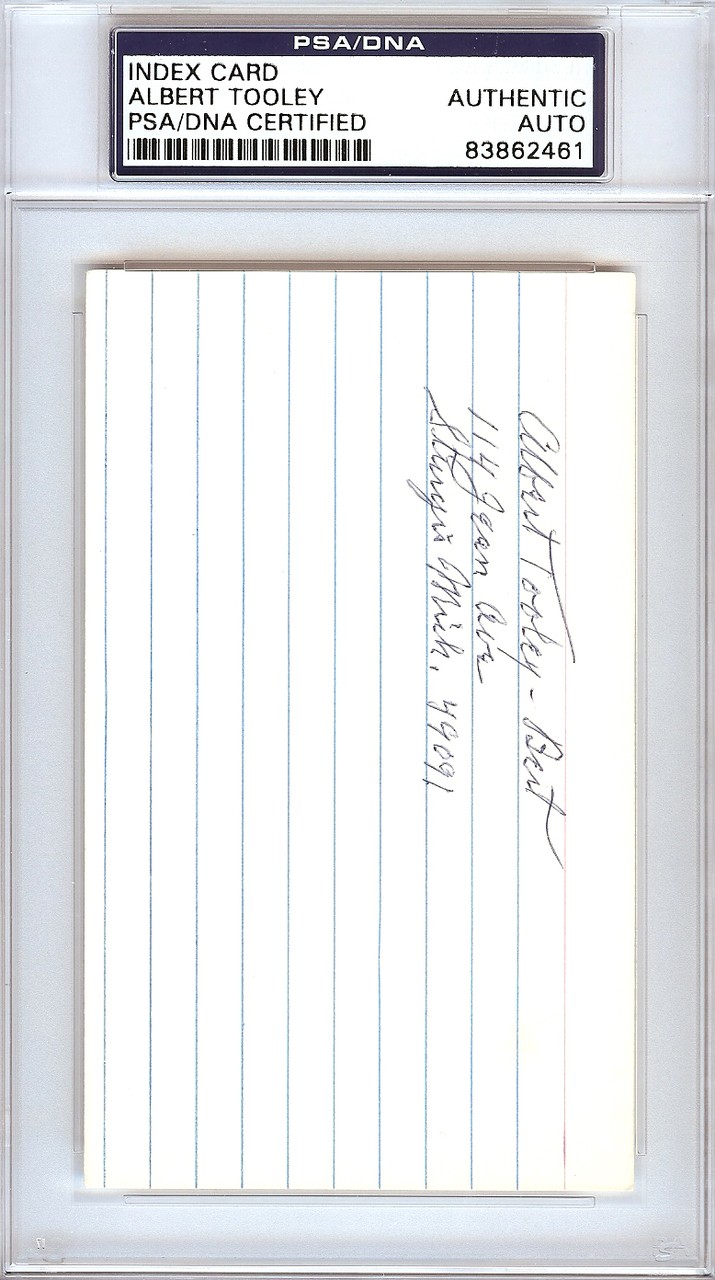 PSA/DNA
INDEX CARD
ALBERT TOOLEY
AUTHENTIC
PSA/DNA CERTIFIED
AUTO
83862461
Albert Tooley - Bert
114 Jean Ave
Sturgis Mich. 49091